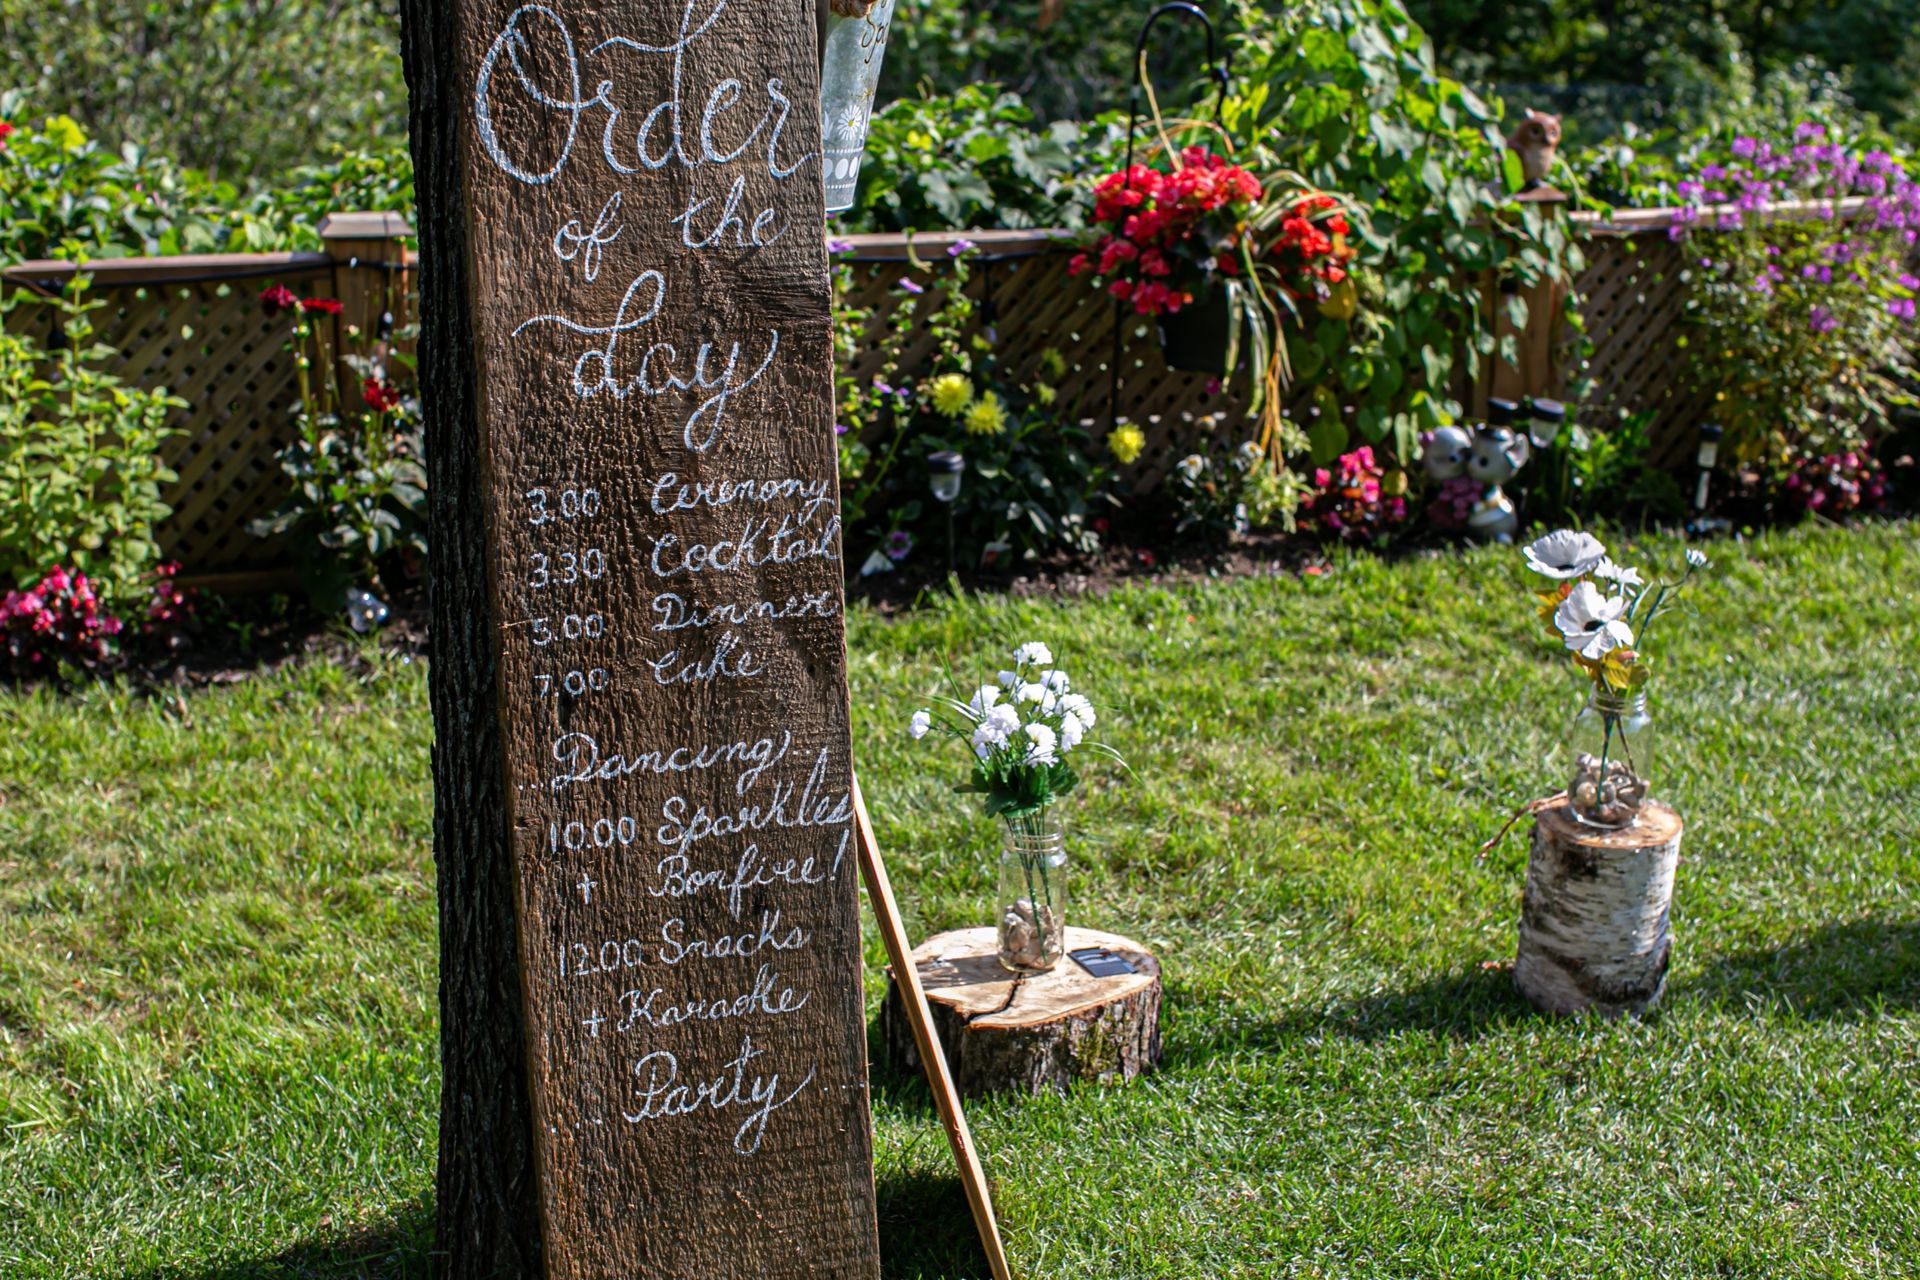 Order
of the
day
3.00 Ceremony
3.30 Cocktail
5.00 Dinner
7.00 Cake
... Dancing ...
10.00 Sparkles
+ Bonfire!
12.00 Snacks
+ Karaoke
... Party ...